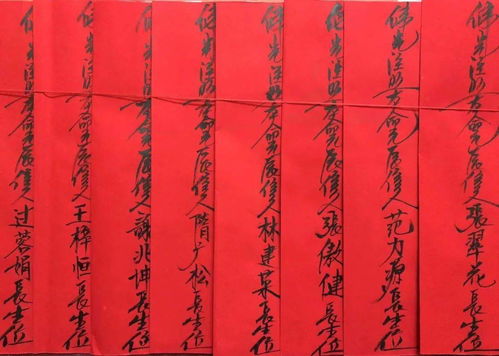 佛光注照本命元辰信人張翠花長生位
佛光注照本命元辰信人范力長生位
佛光注照本命元辰信人張傲健長生位
佛光注照本命元辰信人林建長生位
佛光注照本命元辰信人广松長生位
佛光注照本命元辰信人謝兆坤長生位
佛光注照本命元辰信人王梓恒長生位
佛光注照本命元辰信人过蓉娟長生位